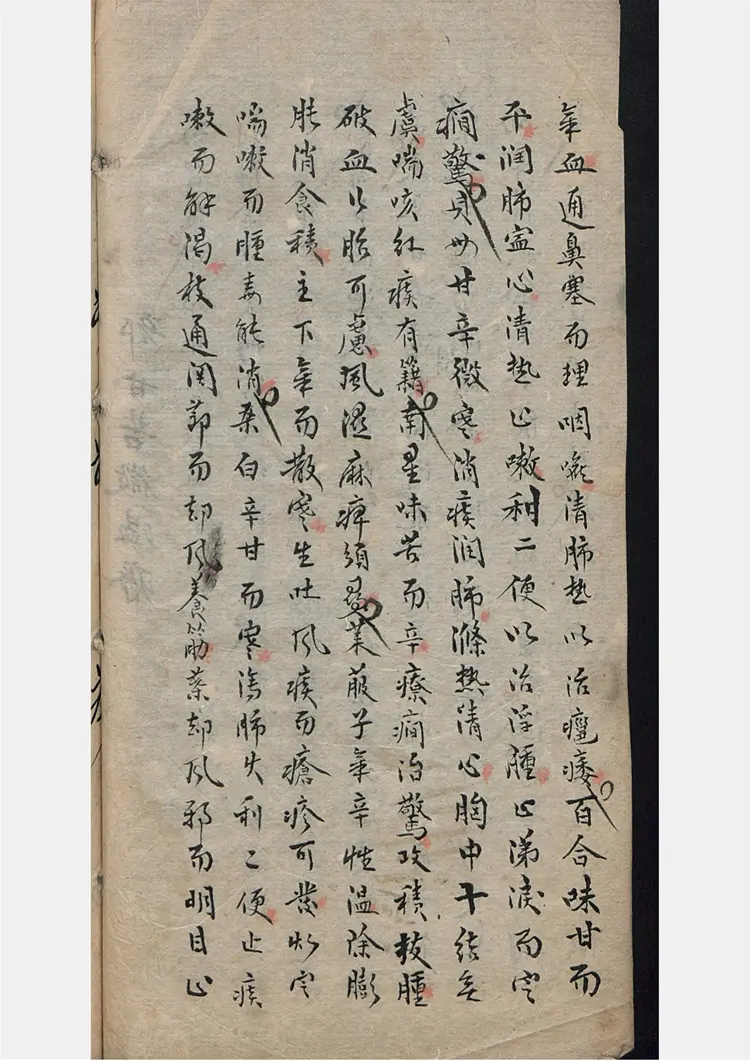 氣血通鼻塞而理咽嚨清肺热以治痿百合味甘而
平润肺寍心清热止嗽利二便以治浮腫止涕淚而定
癎驚貝母甘辛微寒消痰润肺滌热清心胸中干结矣
虞喘咳红痰有藉南星味苦而辛療癎治驚攻積拔腫
破血以胎可慮風濕麻痺須尋莱菔子氣辛性温除膨
脹消食積主下氣而散寒生吐风痰而瘡疹可發炒定
喘嗽而腫毒能消桑白辛甘而寒瀉肺火利二便止痰
嗽而解渴枝通関節而却风養筋葉却风邪而明目止